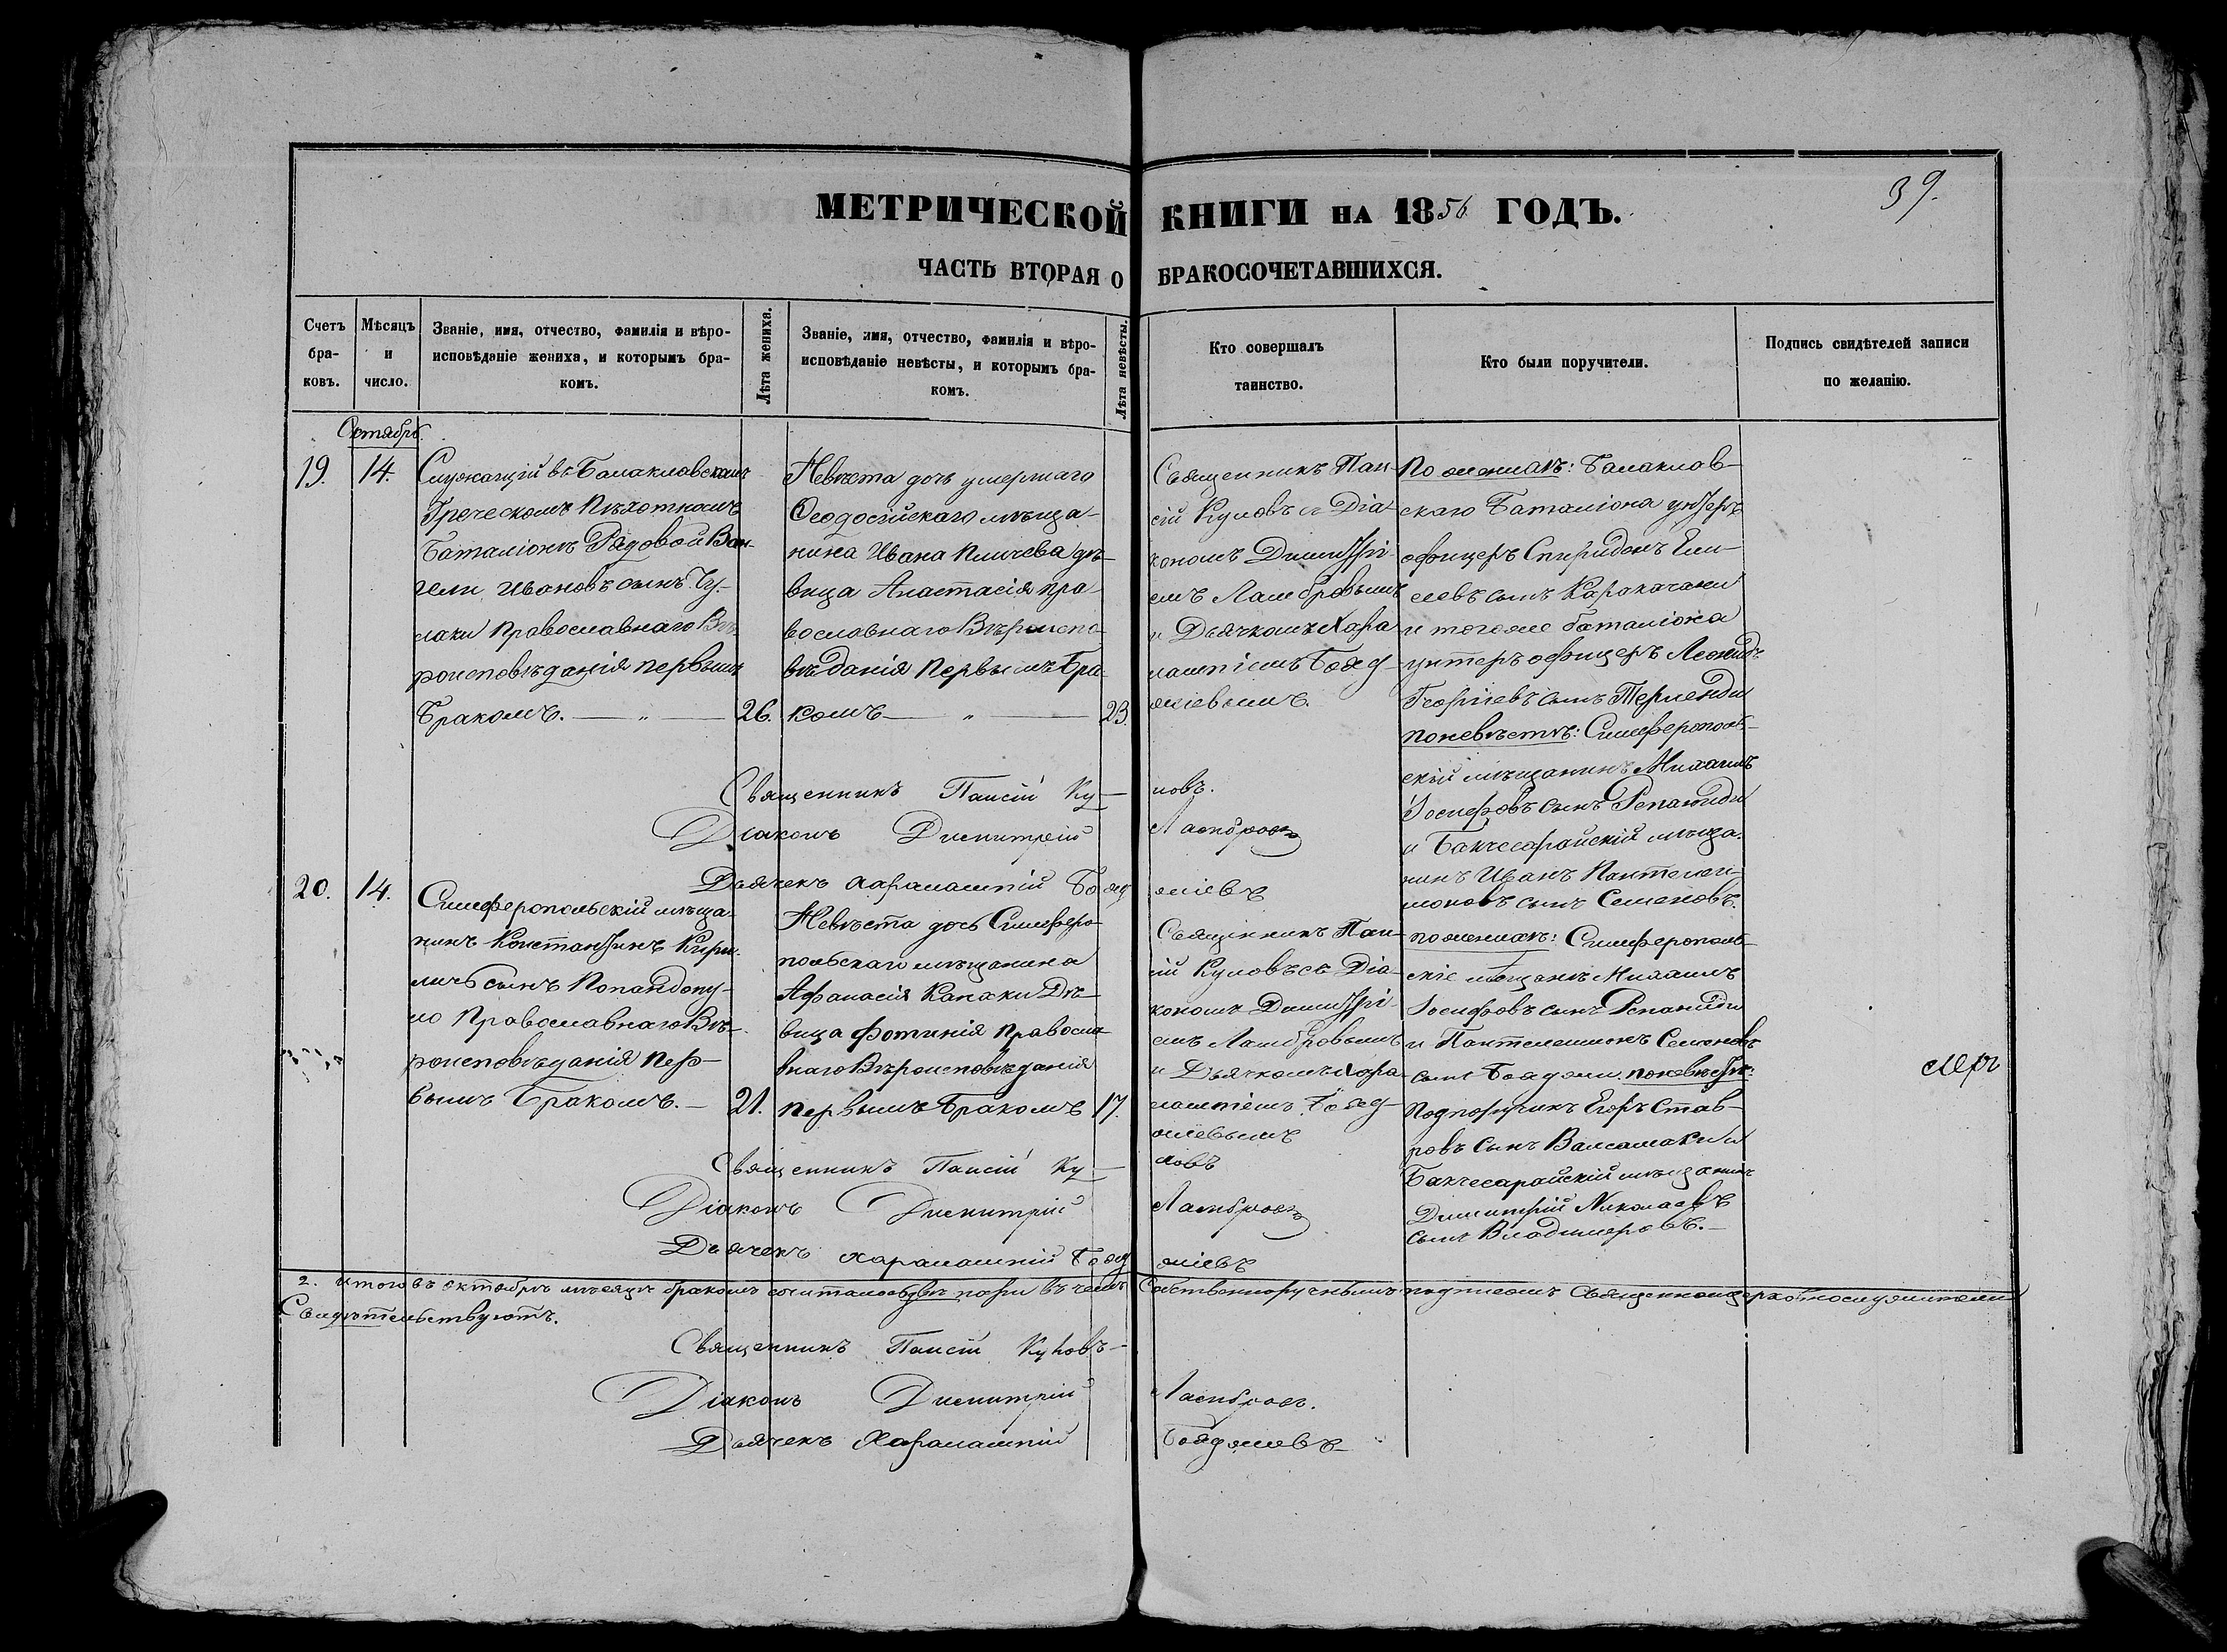 39.
МЕТРИЧЕСКОЙ КНИГИ НА 1856 ГОДЪ.
ЧАСТЬ ВТОРАЯ О БРАКОСОЧЕТАВШИХСЯ.
Счетъ
бра-
ковъ.
Мѣсяцъ
и
число.
Званіе, имя, отчество, фамилія и вѣро-
исповѣданіе жениха, и которымъ бра-
комъ.
Лѣта жениха.
Званіе, имя, отчество, фамилія и вѣро-
исповѣданіе невѣсты, и которымъ бра-
комъ.
Лѣта невѣсты.
Кто совершалъ
таинство.
Кто были поручители.
Подпись свидѣтелей записи
по желанію.
Октябрь.
19.
14.
Служащій въ Балаклавскомъ
Греческомъ Пѣхотномъ
Баталіонѣ Рядовой Ван-
гели Ивановъ сынъ Чу-
лаки Православнаго Вѣ-
роисповѣданія первымъ
Бракомъ. — „ —
26.
Невѣста дочь умершаго
Ѳеодосійскаго мѣща-
нина Ивана Пличева дѣ-
вица Анастасія пра-
вославнаго Вѣроиспо-
вѣданія Первымъ Бра-
комъ — „ —
23.
Священникъ Паи-
сій Куловъ съ Діа-
кономъ Димитрі-
емъ Ламбровымъ
и Дьячкомъ Хара
лампіемъ Бояд-
жіевымъ.
По женихѣ: Балаклав-
скаго Баталіона унтеръ
офицеръ Спиридонъ Ели-
севъ сынъ Каракачани
и тогоже баталіона
унтеръ офицеръ Леонидъ
Георгіевъ сынъ Терленди
поневѣстѣ: Симферополь-
скій мѣщанинъ Михаилъ
Іосифовъ сынъ Репаниди
и Бахчесарайскій мѣща-
нинъ Иванъ Пантелеи-
моновъ сынъ Семеновъ.
Священникъ Паисій Ку-
ловъ.
Діаконъ Димитрій Ламбровъ
Дьячекъ Харалампій Бояд
жіевъ
20.
14.
Симферопольскій мѣща-
нинъ Константинъ Кири-
личъ сынъ Попандопу-
ло Православнаго Вѣ-
роисповѣданія пер-
вымъ Бракомъ. —
21.
Невѣста дочь Симферо-
польскаго мѣщанина
Афанасія Капаки Дѣ-
вица Фотинія Правосла-
внаго Вѣроисповѣданія
первымъ Бракомъ
17.
Священникъ Паи-
сій Куловъ съ Діа-
кономъ Димитрі-
емъ Ламбровымъ
и Дьячкомъ Хара-
лампіемъ Бояд-
жіевымъ
по женихѣ: Симферополь-
скіе мѣщане Михаилъ
Іосифовъ сынъ Репаниди
и Пантелеимонъ Семеновъ
сынъ Бояджи. поневѣстѣ:
Подпоручикъ Егоръ Став-
ровъ сынъ Валсамаки и
Бахчесарайскій мѣщанинъ
Димитрій Николаевъ
сынъ Владимеровъ. —
Священникъ Паисій Ку-
ловъ
Діаконъ Димитрій Ламбровъ
Дьячекъ Харалампій Бояд
жіевъ
2. Итого въ октябрѣ мѣсяцѣ бракомъ сочиталось двѣ пары въ чемъ Собственноручнымъ подписомъ Священноцерковнослужители
Свидѣтельствуютъ.
Священникъ Паисій Куловъ —
Діаконъ Димитрій Ламбровъ.
Дьячекъ Харалампій Бояджіевъ